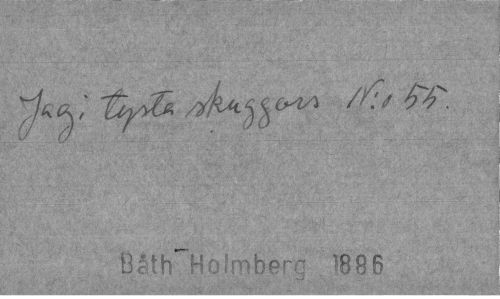 Jag i tysta skuggors N:o 55.
Båth-Holmberg 1886